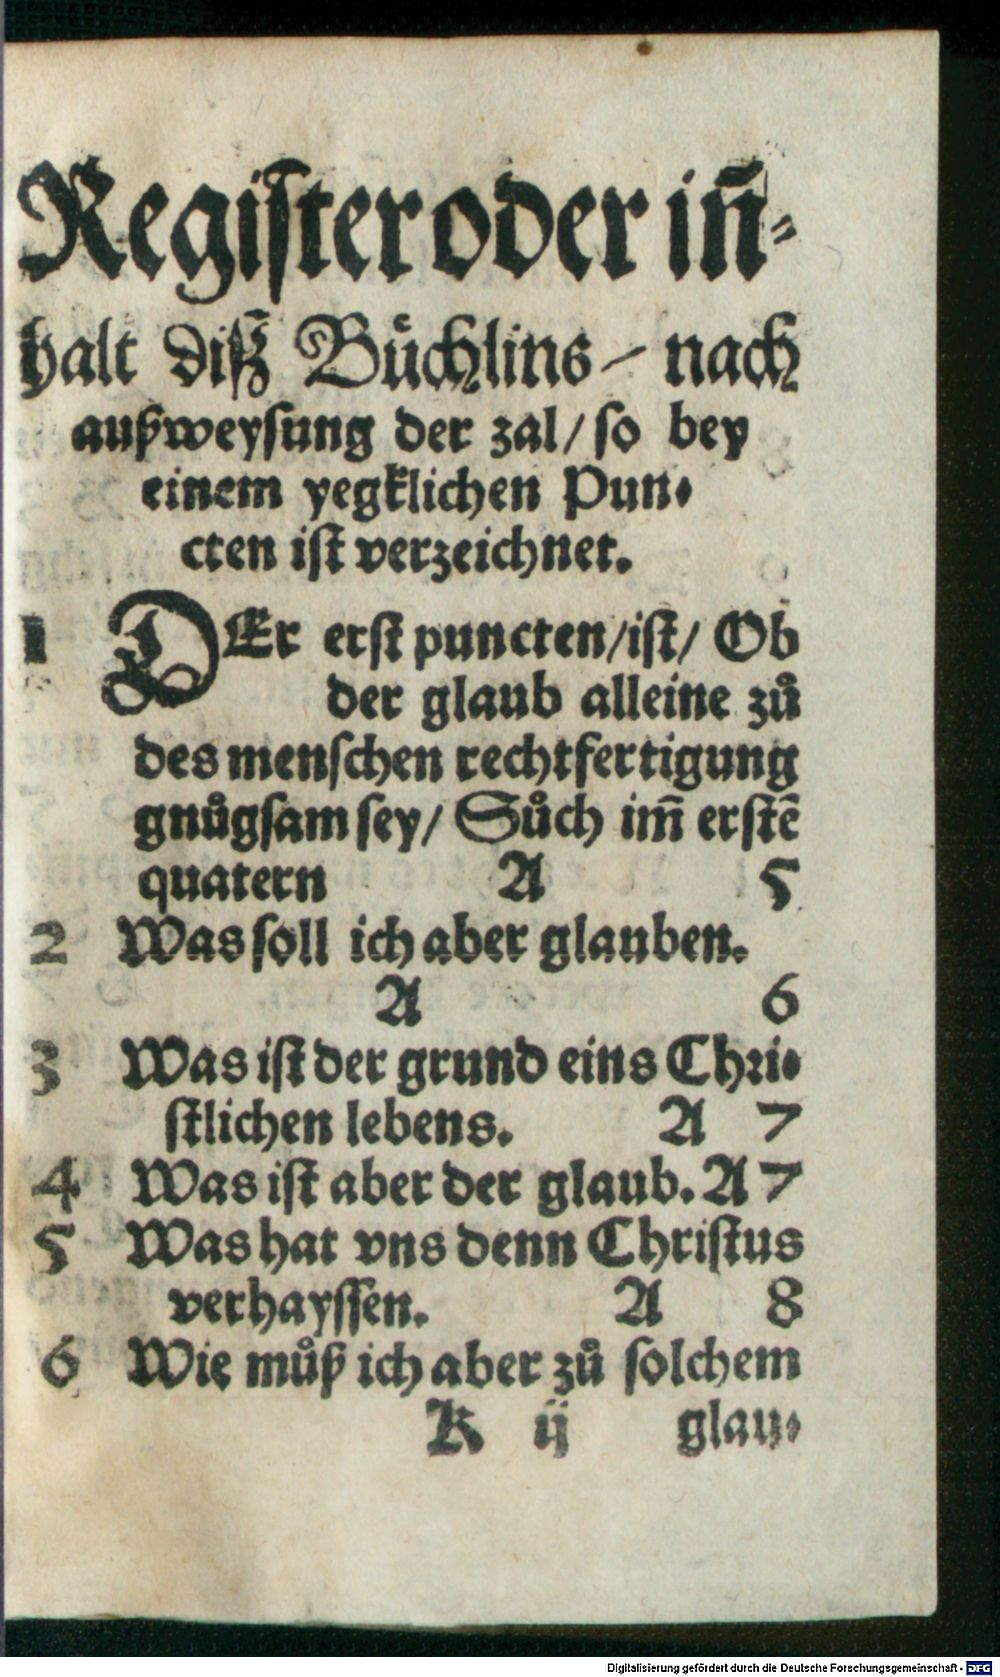 Regiſter oder iñ-
halt diſz̄ Bůchlins / nach
auſzweyſung der zal / ſo bey
einem yegklichen Pun-
cten iſt verzeichnet.
1 DEr erſt puncten / iſt / Ob
der glaub alleine zů
des menſchen rechtfertigung
gnůgſam ſey / Sůch im̃ erſtẽ
quatern A 5
2 Was ſoll ich aber glauben.
A 6
3 Was iſt der grund eins Chꝛi-
ſtlichen lebens. A 7
4 Was iſt aber der glaub. A 7
5 Was hat vns denn Chriſtus
verhayſſen. A 8
6 Wie můß ich aber zů ſolchem
K ij glau-
Digitalisierung gefördert durch die Deutsche Forschungsgemeinschaft - DFG